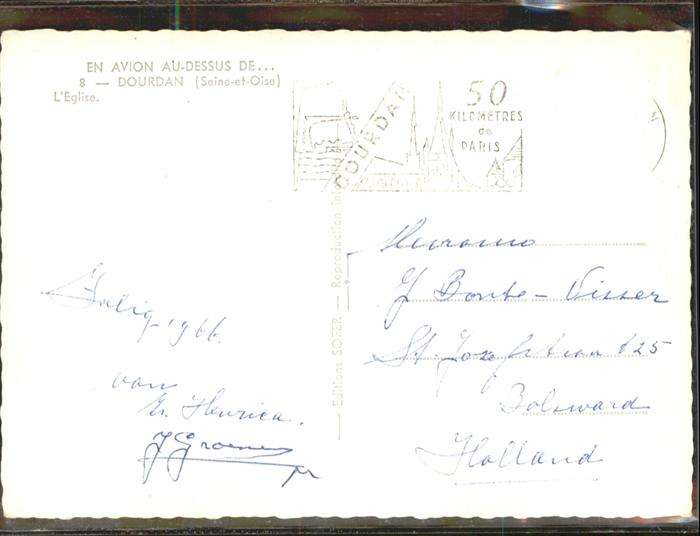 EN AVION AU-DESSUS DE...
8 — DOURDAN (Seine-et-Oise)
L'Eglise.
DOURDAN
50
KILOMETRES
de
PARIS
Editions SOFER — Reproduction
Mevrouw
J Bonte - Visser
St. Jozefstraat 125
Bolsward
Holland
1966.
van
Zr. Henrica.
J Groenen